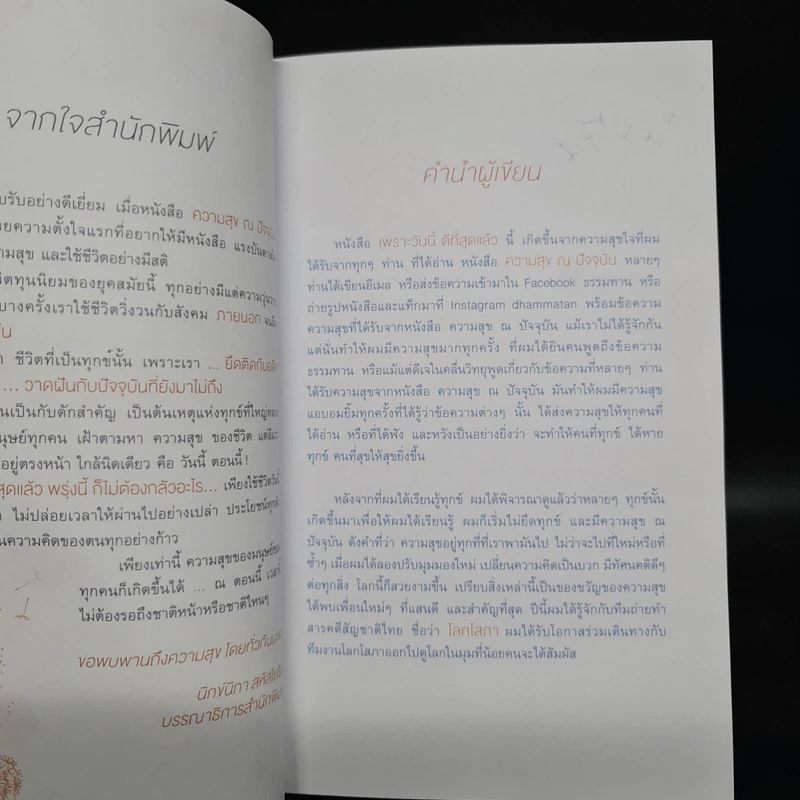 จากใจสำนักพิมพ์
บรับอย่างดีเยี่ยม เมื่อหนังสือ ความสุข ณ ปัจจุบัน
ยความตั้งใจแรกที่อยากให้มีหนังสือ แรงบันดาลใจ
ามสุข และใช้ชีวิตอย่างมีสติ
วิตทุนนิยมของยุคสมัยนี้ ทุกอย่างมีแต่ความวุ่นวาย
บางครั้งเราใช้ชีวิตวิ่งวนกับสังคม ภายนอก
ชีวิตที่เป็นทุกข์นั้น เพราะเรา ... ยึดติดกับอดีต
... วาดฝันกับปัจจุบันที่ยังมาไม่ถึง
นเป็นกับดักสำคัญ เป็นต้นเหตุแห่งทุกข์ที่ใหญ่
นุษย์ทุกคน เฝ้าตามหา ความสุข ของชีวิต
อยู่ตรงหน้า ใกล้นิดเดียว คือ วันนี้ ตอนนี้ !
สุดแล้ว พรุ่งนี้ ก็ไม่ต้องกลัวอะไร... เพียงใช้ชีวิตวันนี้
ไม่ปล่อยเวลาให้ผ่านไปอย่างเปล่า ประโยชน์
นความคิดของตนทุกอย่างก้าว
เพียงเท่านี้ ความสุขของมนุษย์
ทุกคนก็เกิดขึ้นได้ ... ณ ตอนนี้
ไม่ต้องรอถึงชาติหน้าหรือชาติไหนๆ
ขอพบพานถึงความสุข โดยทั่วกัน
นิกข์นิภา
บรรณาธิการสำนักพิมพ์
คำนำผู้เขียน
หนังสือ เพราะวันนี้ ดีที่สุดแล้ว นี้ เกิดขึ้นจากความสุขใจที่ผม
ได้รับจากทุกๆ ท่าน ที่ได้อ่าน หนังสือ ความสุข ณ ปัจจุบัน หลายๆ
ท่านได้เขียนอีเมล หรือส่งข้อความเข้ามาใน Facebook ธรรมทาน หรือ
ถ่ายรูปหนังสือและแท็กมาที่ Instagram dhammatan พร้อมข้อความ
ความสุขที่ได้รับจากหนังสือ ความสุข ณ ปัจจุบัน แม้เราไม่ได้รู้จักกัน
แต่นั่นทำให้ผมมีความสุขมากทุกครั้ง ที่ผมได้ยินคนพูดถึงข้อความ
ธรรมทาน หรือแม้แต่ดีเจในคลื่นวิทยุพูดเกี่ยวกับข้อความที่หลายๆ ท่าน
ได้รับความสุขจากหนังสือ ความสุข ณ ปัจจุบัน มันทำให้ผมมีความสุข
แอบอมยิ้มทุกครั้งที่ได้รู้ว่าข้อความต่างๆ นั้น ได้ส่งความสุขให้ทุกคนที่
ได้อ่าน หรือที่ได้ฟัง และหวังเป็นอย่างยิ่งว่า จะทำให้คนที่ทุกข์ ได้หาย
ทุกข์ คนที่สุขให้สุขยิ่งขึ้น
หลังจากที่ผมได้เรียนรู้ทุกข์ ผมได้พิจารณาดูแล้วว่าหลายๆ ทุกข์นั้น
เกิดขึ้นมาเพื่อให้ผมได้เรียนรู้ ผมก็เริ่มไม่ยึดทุกข์ และมีความสุข ณ
ปัจจุบัน ดังคำที่ว่า ความสุขอยู่ทุกที่ที่เราพามันไป ไม่ว่าจะไปที่ใหม่หรือที่
ซ้ำๆ เมื่อผมได้ลองปรับมุมมองใหม่ เปลี่ยนความคิดเป็นบวก มีทัศนคติดีๆ
ต่อทุกสิ่ง โลกนี้ก็สวยงามขึ้น เปรียบสิ่งเหล่านี้เป็นของขวัญของความสุข
ได้พบเพื่อนใหม่ๆ ที่แสนดี และสำคัญที่สุด ปีนี้ผมได้รู้จักกับทีมถ่ายทำ
สารคดีสัญชาติไทย ชื่อว่า โลกโสภา ผมได้รับโอกาสร่วมเดินทางกับ
ทีมงานโลกโสภาออกไปดูโลกในมุมที่น้อยคนจะได้สัมผัส